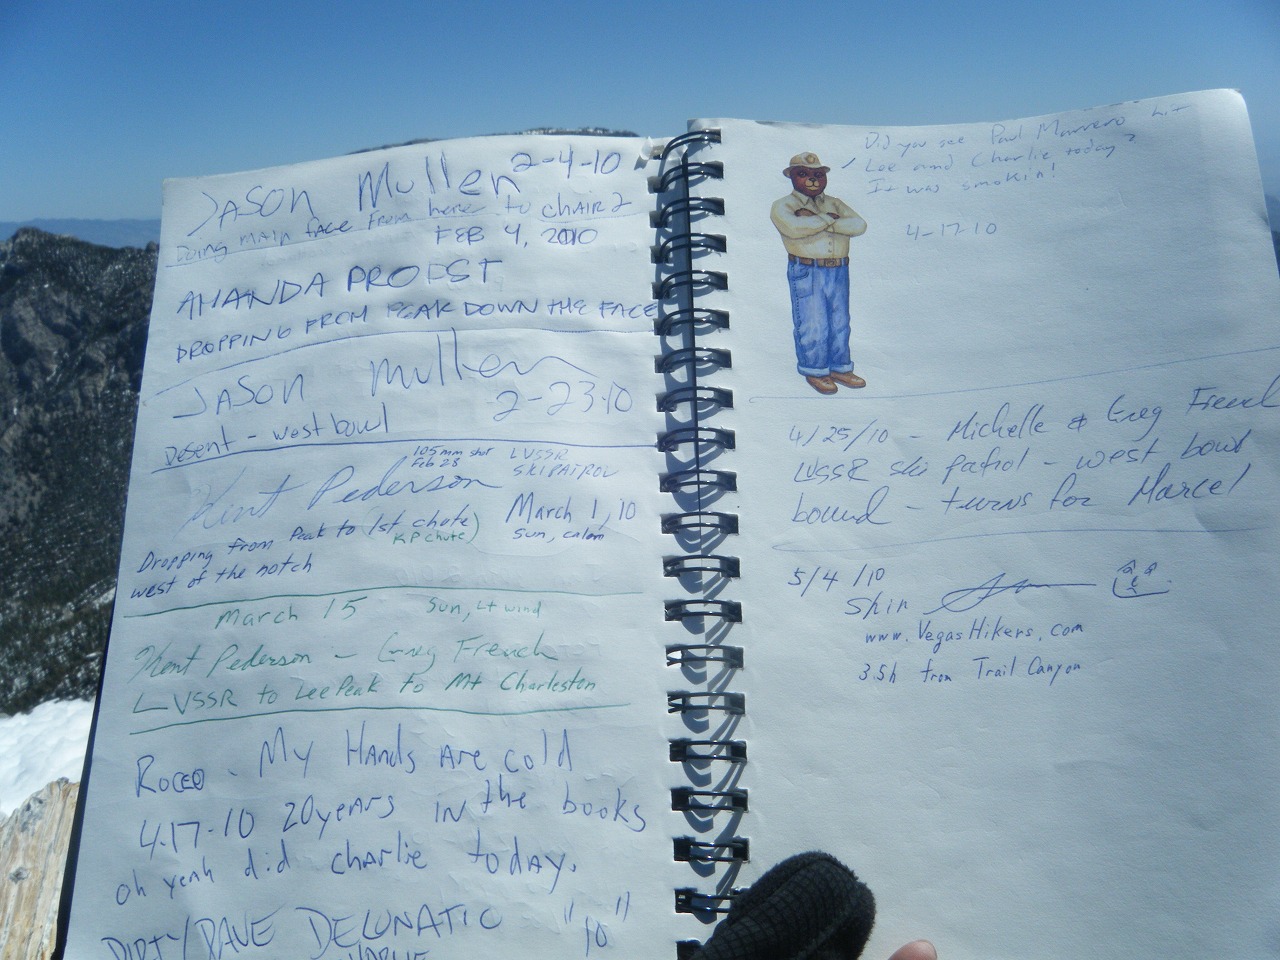 Jason Mullen 2-4-10
Doing main face from here to chair 2
FEB 4, 2010
AMANDA PROPST
DROPPING FROM PEAK DOWN THE FACE
Jason Mullen
2-23-10
Desent - west bowl
105mm shot LVSSR
Feb 28 SKI PATROL
Kent Pederson March 1, 10
Dropping from Peak to 1st chute) Sun, calm
KP chute)
west of the notch
March 15 Sun, Lt wind
Kent Pederson - Greg French
LVSSR to Lee Peak to Mt Charleston
Rocco - My Hands Are cold
4-17-10 20 years in the books
oh yeah did charlie today.
DIRTY DAVE DELUNATIC "10"
Did you see Paul Marrero hit
Lee and Charlie today?
It was smokin!
4-17-10
4/25/10 - Michelle & Greg French
LVSSR ski patrol - west bowl
bound - turns for Marcel
5/4/10
Shin
www.VegasHikers.com
3.5h from Trail Canyon